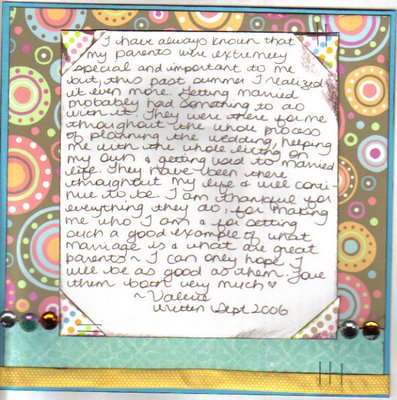 I have always known that
my parents were extremely
special and important to me
but this past summer I realized
it even more. Getting married
probably had something to do
with it. They were there for me
throughout the whole process
of planning the wedding, helping
me with the whole living on
my own & getting used to married
life. They have been there
throughout my life & will conti-
nue to be. I am thankful for
everything they do, for making
me who I am & for setting
such a good example of what
marriage is & what are great
parents ~ I can only hope I
will be as good as them. Love
them both very much ♥
~Valerie
Written Sept 2006